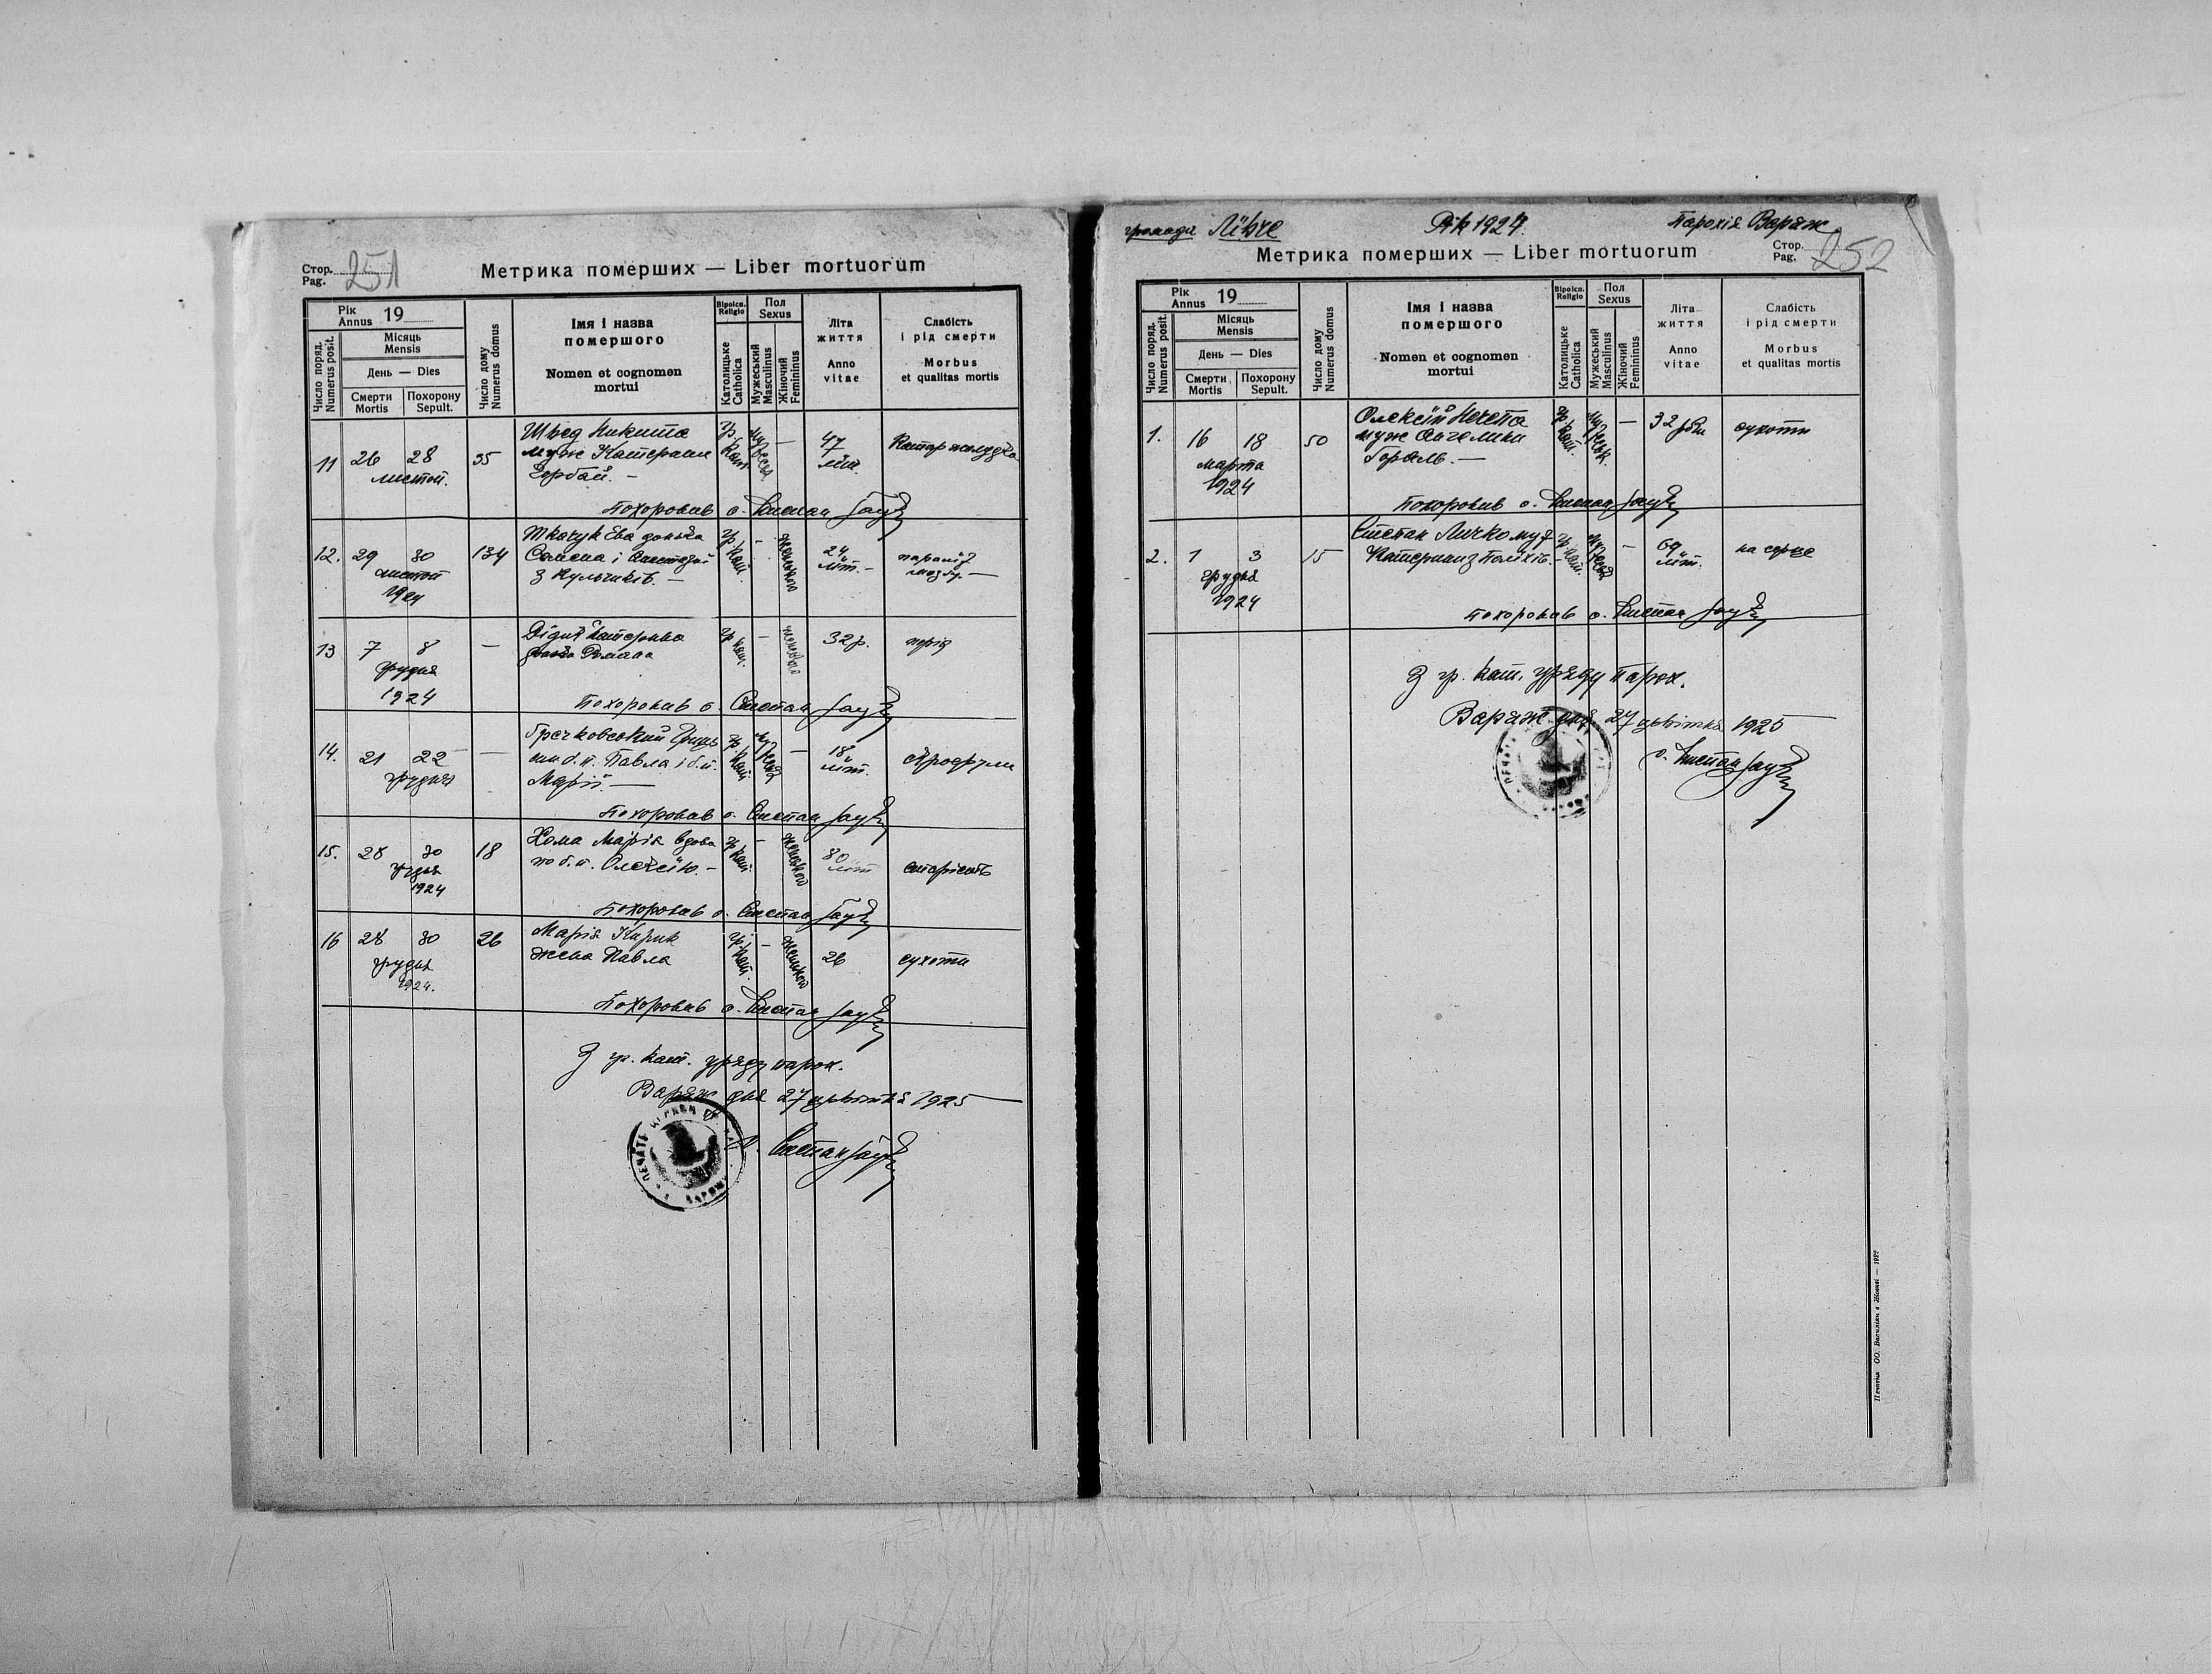 Стор.
Pag. 251
Метрика померших — Liber mortuorum
Рік
Annus 19
Число поряд.
Numerus posit.
Місяць
Mensis
День — Dies
Смерти
Mortis
Похорону
Sepult.
Число дому
Numerus domus
Імя і назва
помершого
Nomen et cognomen
mortui
Віроісп.
Religio
Католицьке
Catholica
Пол
Sexus
Мужеський
Masculinus
Жіночий
Femininus
Літа
життя
Anno
vitae
Слабість
і рід смерти
Morbus
et qualitas mortis
11 26 28 35 Швед Никита гр. — 47 Катар
листоп. муж Катерини кат. літ.
Горбай. —
Похоронив о. Степан
12. 29 30 134 Ткачук Ева донька гр. — женського 24
листоп. Семена і кат. літ. —
1924 з Кульчиків. —
13 7 8 — Дідик Катерина гр. — женського 32 р.
грудня Романа кат.
1924
Похоронив о. Степан
14. 21 22 — Гречковский гр. — 18 скрофули
грудня б. п. Павла і б. п. кат. літ.
Марії. —
Похоронив о. Степан
15. 28 30 18 Хома Марія вдова гр. — женського 80 старість
грудня по б. п. Олексію. — кат. літ
1924
Похоронив о. Степан
16 28 30 26 Марія Кирик гр. — женського 26 сухоти
грудня жена Павла кат.
1924.
Похоронив о. Степан
З гр. кат. уряду парох.
Варяж дня 27 цвітня 1925
о. Степан
громада Лівче Рік 1924. Парохія Варяж
Метрика померших — Liber mortuorum
Стор.
Pag. 252
Рік
Annus 19
Число поряд.
Numerus posit.
Місяць
Mensis
День — Dies
Смерти
Mortis
Похорону
Sepult.
Число дому
Numerus domus
Імя і назва
помершого
Nomen et cognomen
mortui
Віроісп.
Religio
Католицьке
Catholica
Пол
Sexus
Мужеський
Masculinus
Жіночий
Femininus
Літа
життя
Anno
vitae
Слабість
і рід смерти
Morbus
et qualitas mortis
1. 16 18 50 Олексій гр. — 32 сухоти
марта муж Ангелини кат.
1924
Похоронив о. Степан
2. 1 3 15 Степан Личко муж гр. — 69 на серце
грудня Катерини з кат. літ.
1924
Похоронив о. Степан
З гр. кат. уряду парох.
Варяж дня 27 цвітня 1925
о. Степан
Печатня ОО. Василіян в Жовкві — 1922